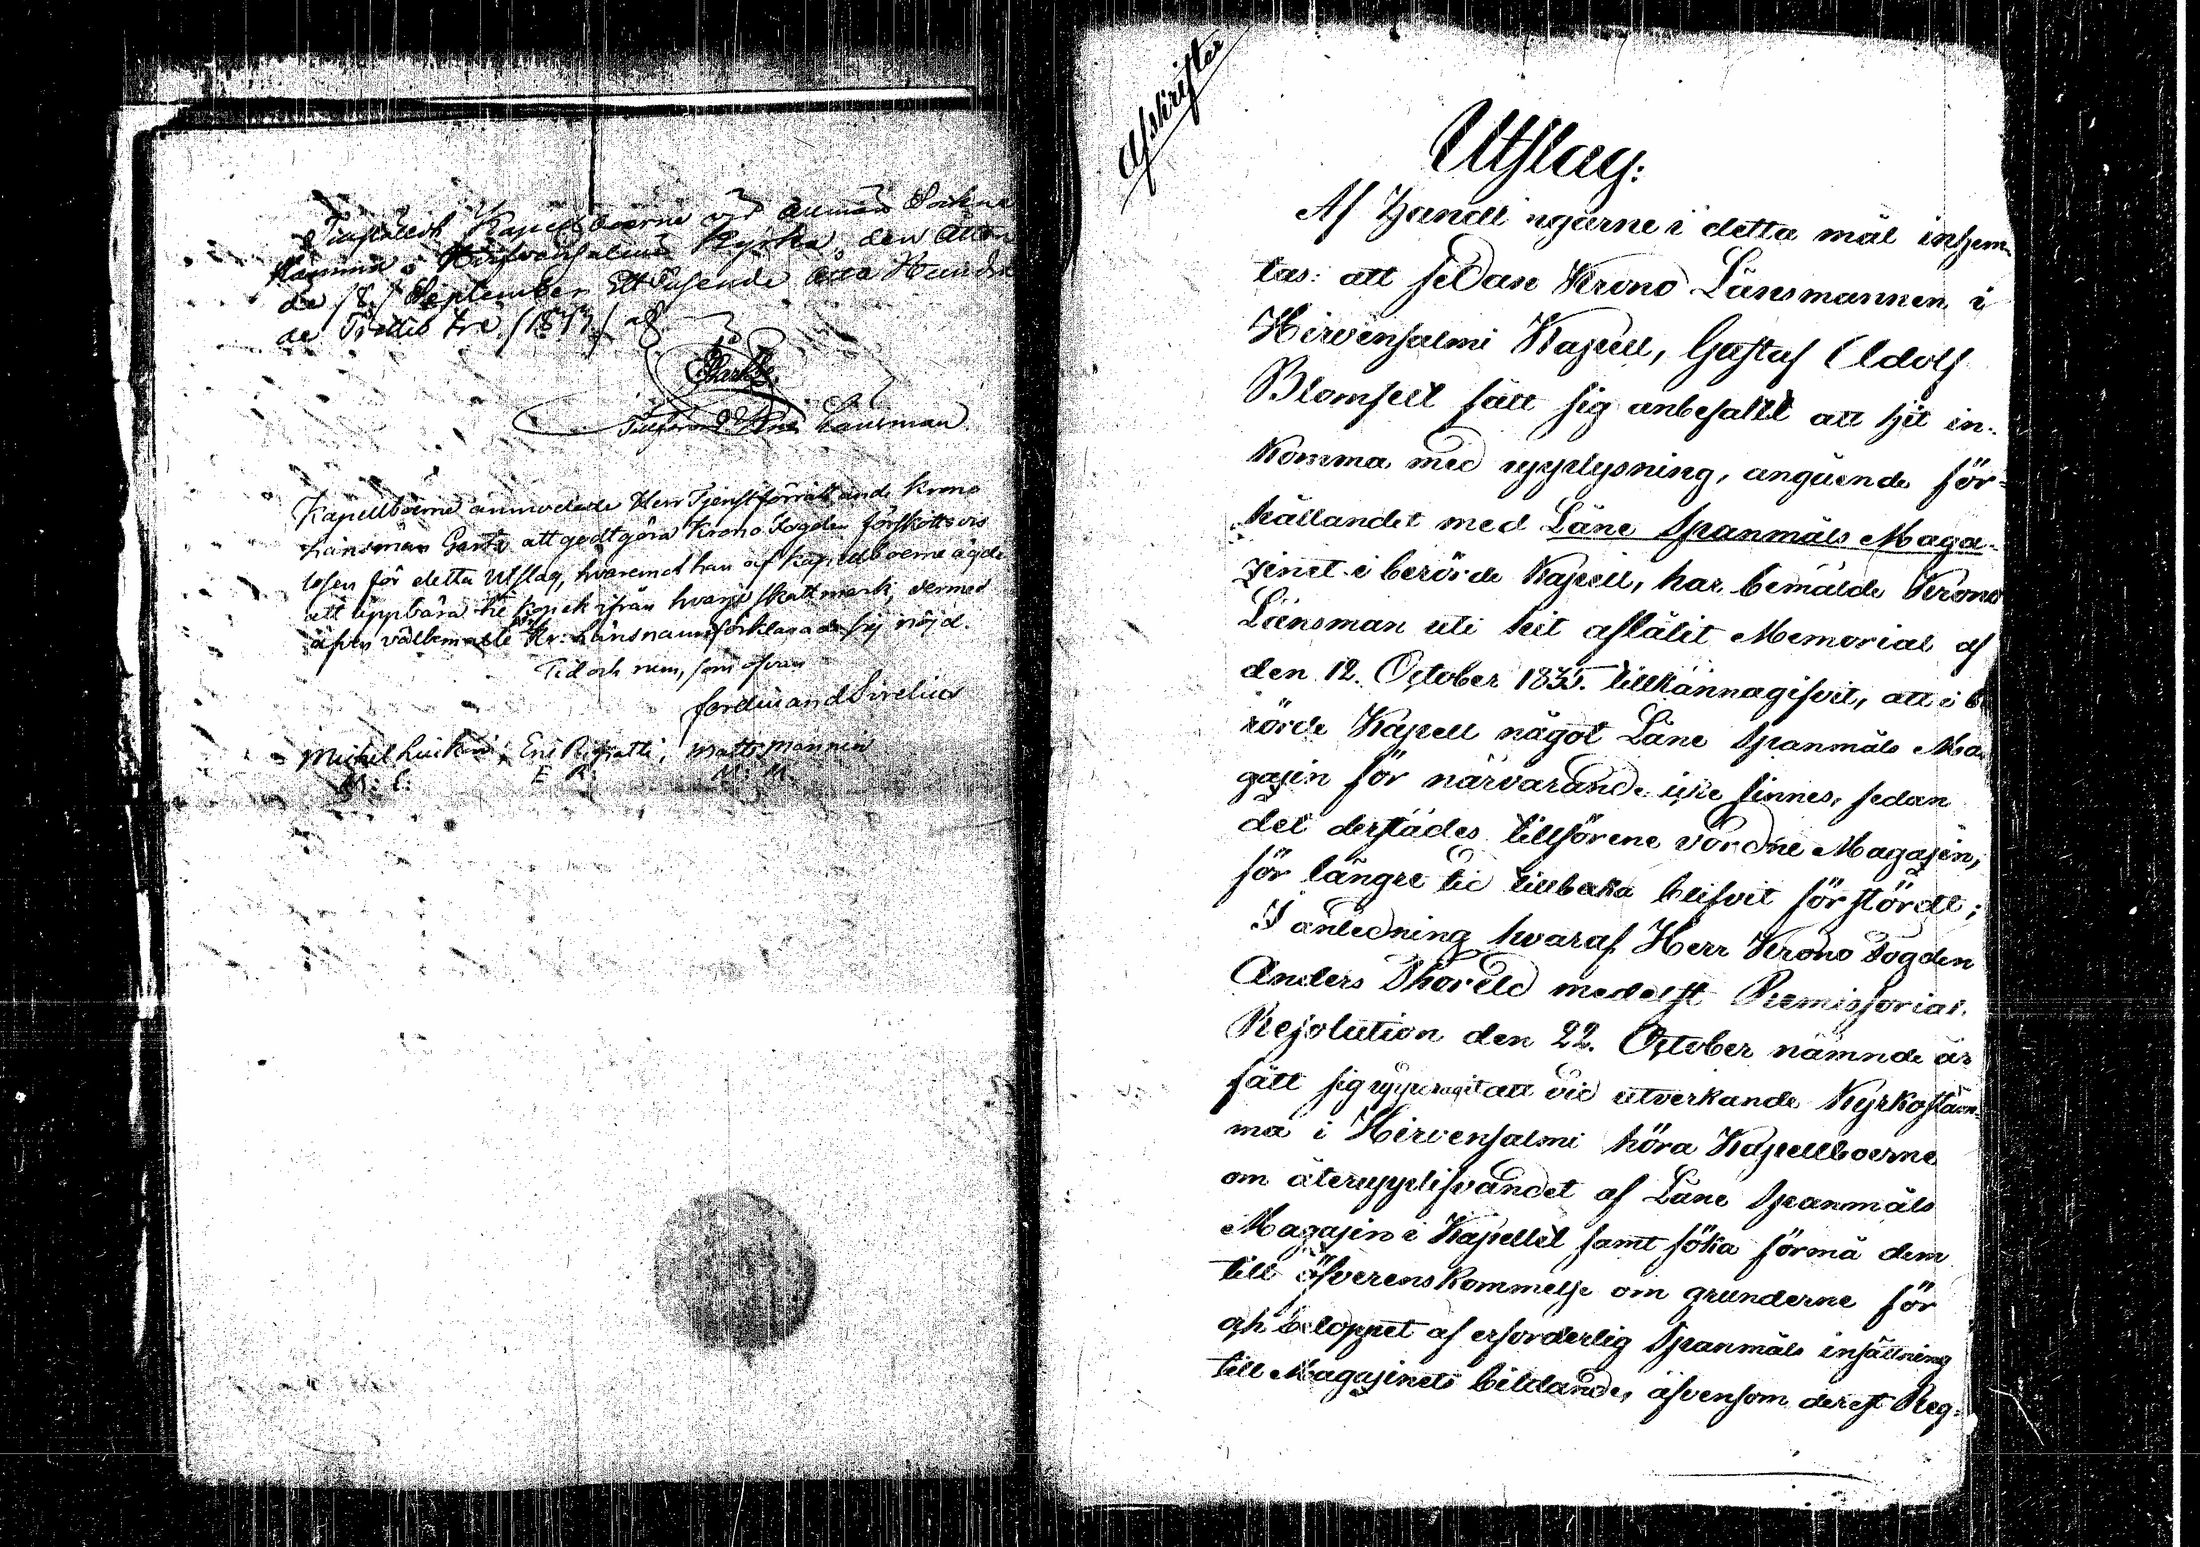 Kapellboerne vid allmän Sockne
stämma i Hirfvensalmi Kyrka, den åtton
de /8/ September Ett Tusende åtta Hundra
de Trettio tre /1833/ af
Länsman
Kapellboerne anmodade Herr Tjenstförrättande Krono
Länsman Gartz att godtgöra Krono Fogden förskottsvis
lösen för detta Utslag, hvaremot han af Kapellboerne ägde
att uppbära kopek ifrån hvarje skattmark, dermed
äfven välbemälte Hr: Länsman förklarade sig nöjd.
Tid och rum, som ofvan
Ferdinand Sirelius
Michel Luukin, Eric Matts Manninen
M: L: E R: M: M.
Afskrifter
Utslag:
Af Handlingarne i detta mål inhem-
tas: att sedan Krono Länsmannen i
Hirvensalmi Kapell, Gustaf Adolf
Blomfelt fått sig anbefallt att hit in-
komma med upplysning, angående för-
hållandet med Låne Spanmåls Maga-
zinet i berörde Kapell, har bemälde Krono
Länsman uti hit aflåtit Memorial af
den 12. October 1835. tillkännagifvit, att i be
rörde Kapell något Låne Spanmåls Ma-
gasin för närvarande icke finnes, sedan
det derstädes tillförene vordne Magasin,
för längre tid tillbaka blifvit förstördt;
I anledning hvaraf Herr Krono Fogden
Anders Thoreld medelst Remissorial
Resolution den 22. October nämnde år
fått sig uppdragit att vid utverkande Kyrkostäm-
ma i Hirvensalmi höra Kapellboerne
om återupplifvandet af Låne Spanmåls
Magasin i Kapellet samt söka förmå dem
till öfverenskommelse om grunderne för
och beloppet af erforderlig Spanmåls insättning
till Magasinets bildande, äfvensom derest Reg-